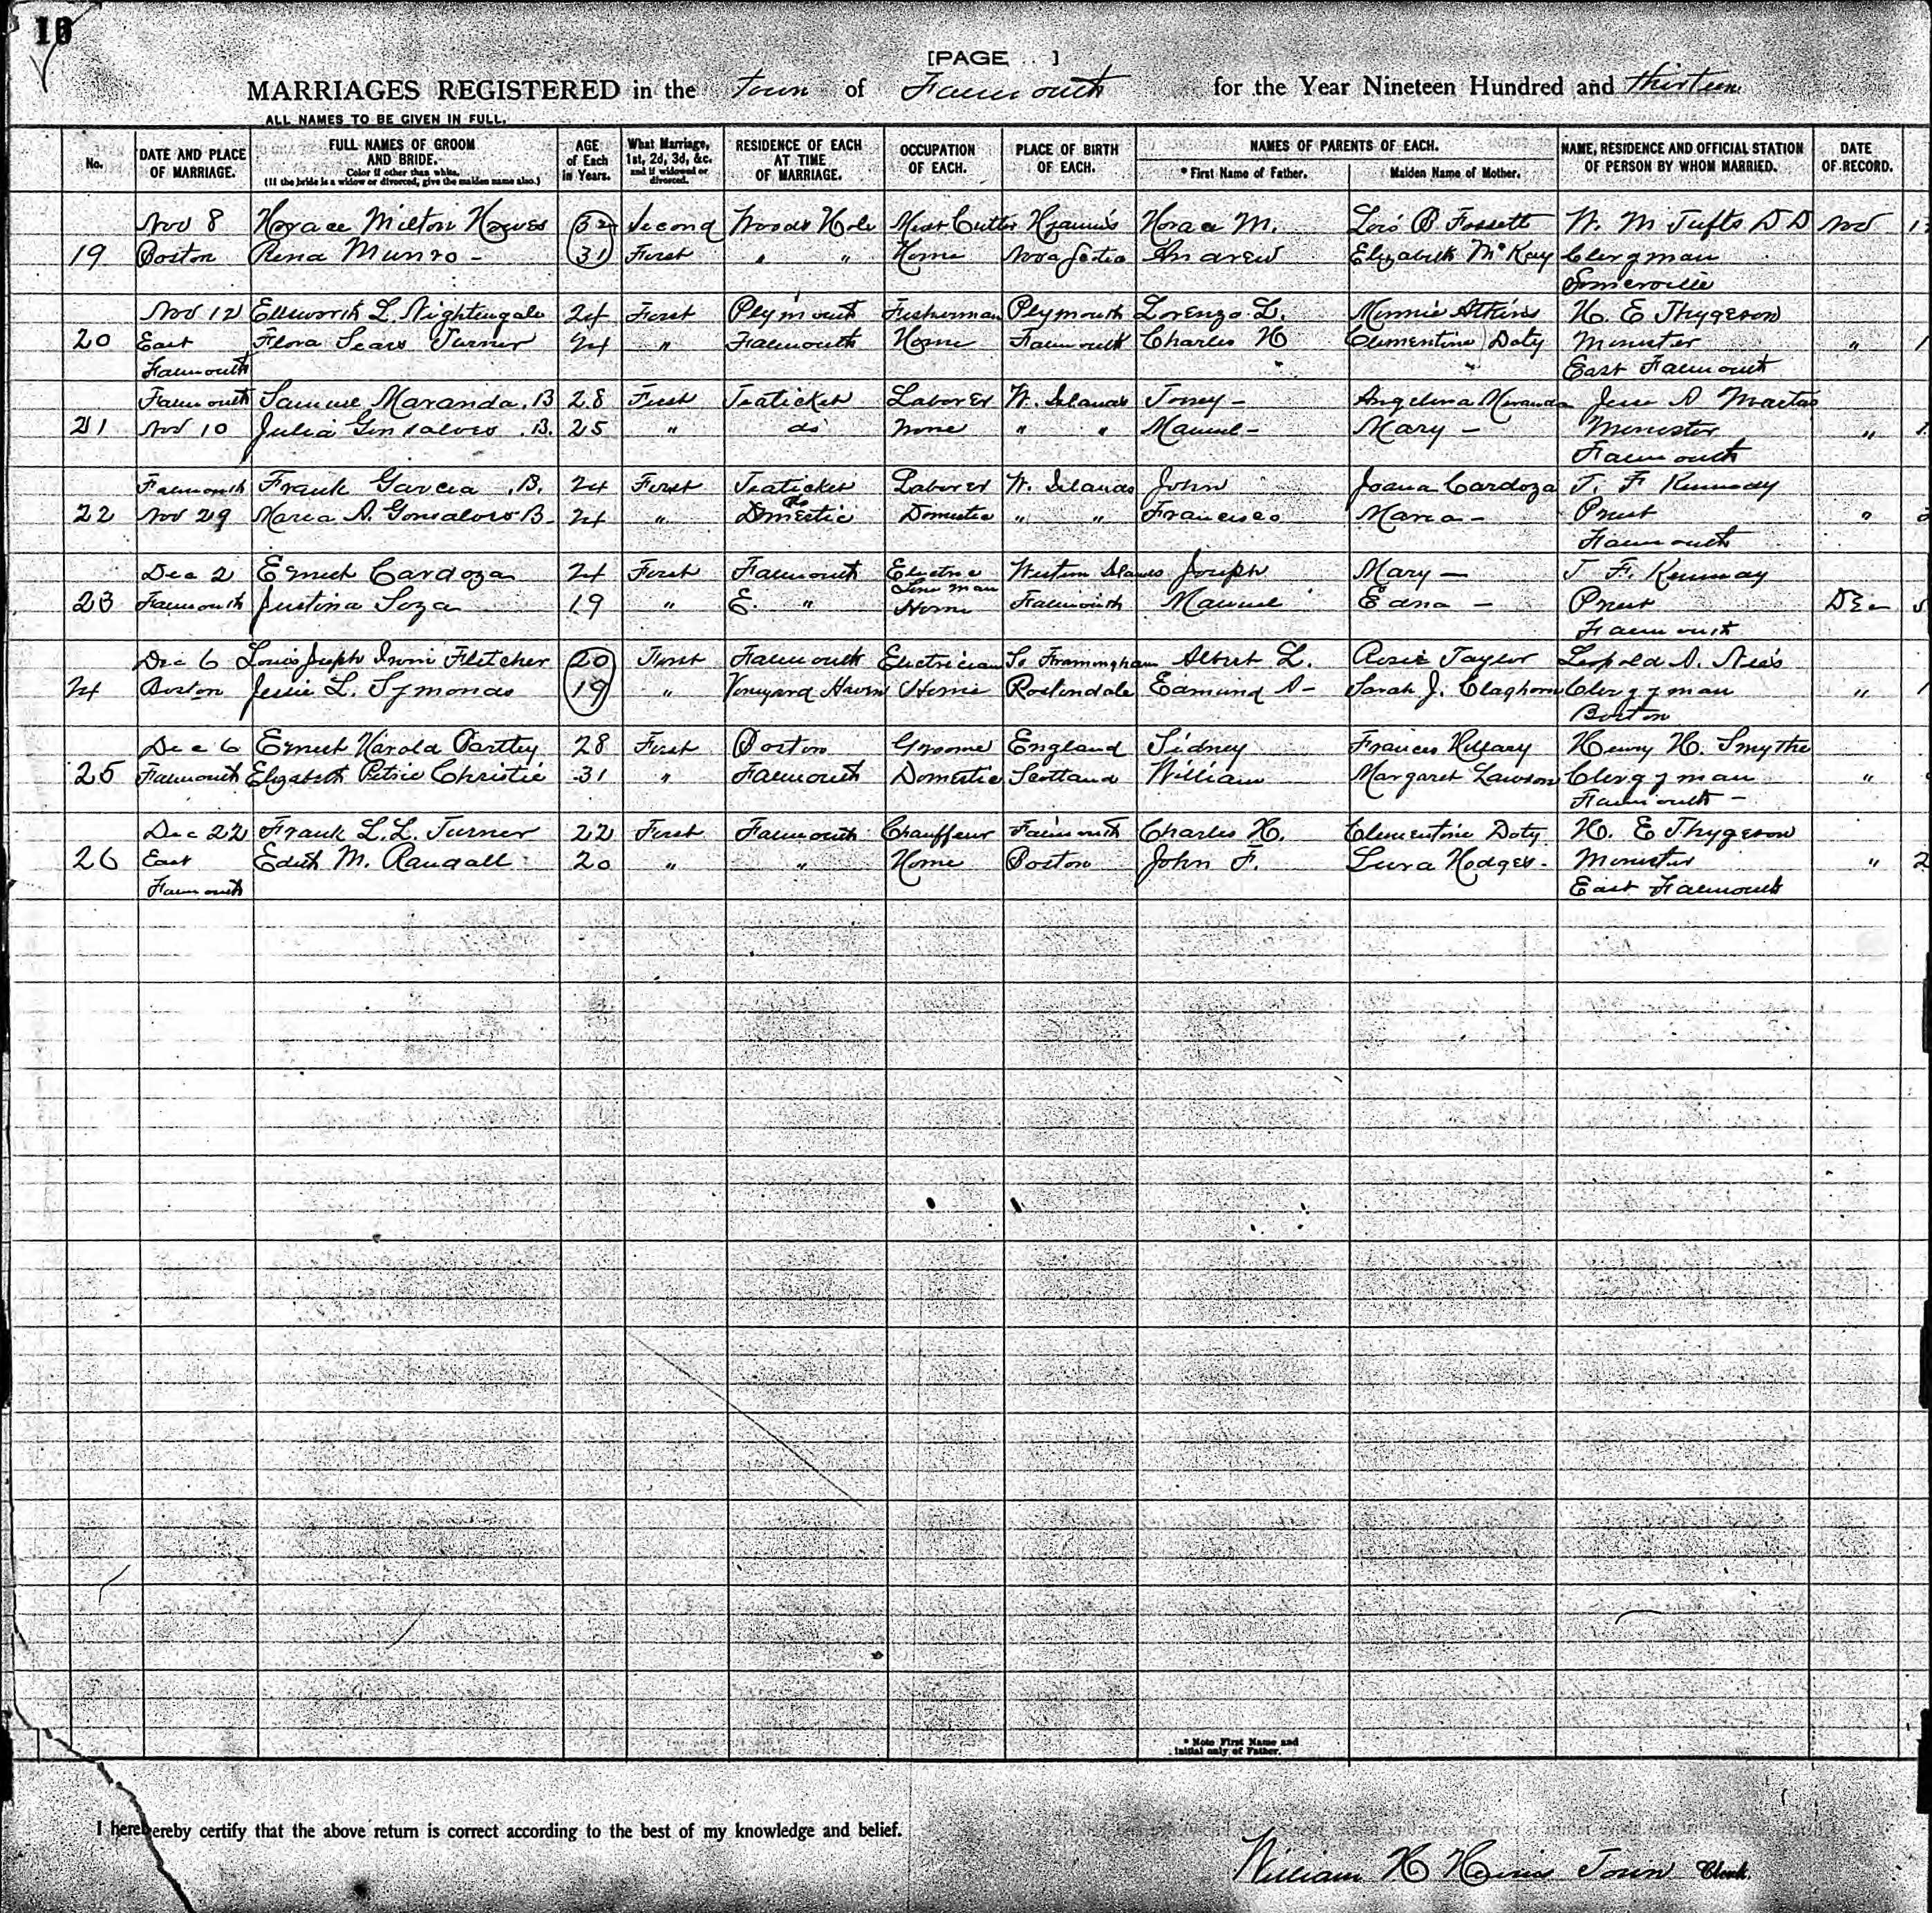 10
[PAGE ]
MARRIAGES REGISTERED in the Town of Falmouth for the Year Nineteen Hundred and thirteen
ALL NAMES TO BE GIVEN IN FULL.
No. DATE AND PLACE OF MARRIAGE. FULL NAMES OF GROOM AND BRIDE. Color if other than white. (If the bride is a widow or divorced, give the maiden name also.) AGE of Each in Years. What Marriage, 1st, 2d, 3d, &c. and if widowed or divorced. RESIDENCE OF EACH AT TIME OF MARRIAGE. OCCUPATION OF EACH. PLACE OF BIRTH OF EACH. NAMES OF PARENTS OF EACH. * First Name of Father. Maiden Name of Mother. NAME, RESIDENCE AND OFFICIAL STATION OF PERSON BY WHOM MARRIED. DATE OF RECORD.
Nov 8 Horace Milton Howes 32 Second Woods Hole Meat Cutter Hyannis Horace M. Lois B Fossett W. M Tufts D D Nov
19 Boston Rena Munro - 31 First " " Home Nova Scotia Andrew Elizabeth McKay Clergman
Somerville
Nov 12 Ellsworth L. Nightingale 24 First Plymouth Fisherman Plymouth Lorenzo L. Minnie Atkins H. E Thygeson
20 East Flora Sears Turner 24 " Falmouth Home Falmouth Charles H Clementine Doty Minister "
Falmouth East Falmouth
Falmouth Samuel Maranda. B 28 First Teaticket Laborer W. Islands Toney - Angelina Maranda
21 Nov 10 Julia Gonsalves .B. 25 " do None " " Manuel - Mary - Minister "
Falmouth
Falmouth Frank Garcia .B. 24 First Teaticket Laborer W. Islands John Joana Cardoza T. F Kennedy
22 Nov 29 Maria A. Gonsalves B. 24 " Domestic do Domestic " " Francisco Maria - Priest "
Falmouth
Dec 2 Ernest Cardoza 24 First Falmouth Electric Line man Western Islands Joseph Mary - T F. Kennedy
23 Falmouth Justina Soza 19 " E. " Home Falmouth Manuel Edna - Priest Dec
Falmouth
Dec 6 Louis Joseph Irvin Fletcher 20 First Falmouth Electrician So Framingham Albert L. Rosie Taylor Leopold A. Nies
24 Boston Jessie L. Symonds 19 " Vineyard Haven Home Roslindale Edmund A - Sarah J. Claghorn Clergyman "
Boston
Dec 6 Ernest Harold Partley 28 First Boston Groome England Sidney Frances Hillary Henry H. Smythe
25 Falmouth Elizabeth Petrie Christie 31 " Falmouth Domestic Scotland William Margaret Lawson Clergyman "
Falmouth -
Dec 22 Frank L. L. Turner 22 First Falmouth Chauffeur Falmouth Charles H. Clementine Doty H. E Thygeson
26 East Edith M. Randall 20 " " Home Boston John F. Lura Hodges - Minister " 2
Falmouth East Falmouth
* Note First Name and initial only of Father.
I herebereby certify that the above return is correct according to the best of my knowledge and belief.
William H Hewins Town Clerk.